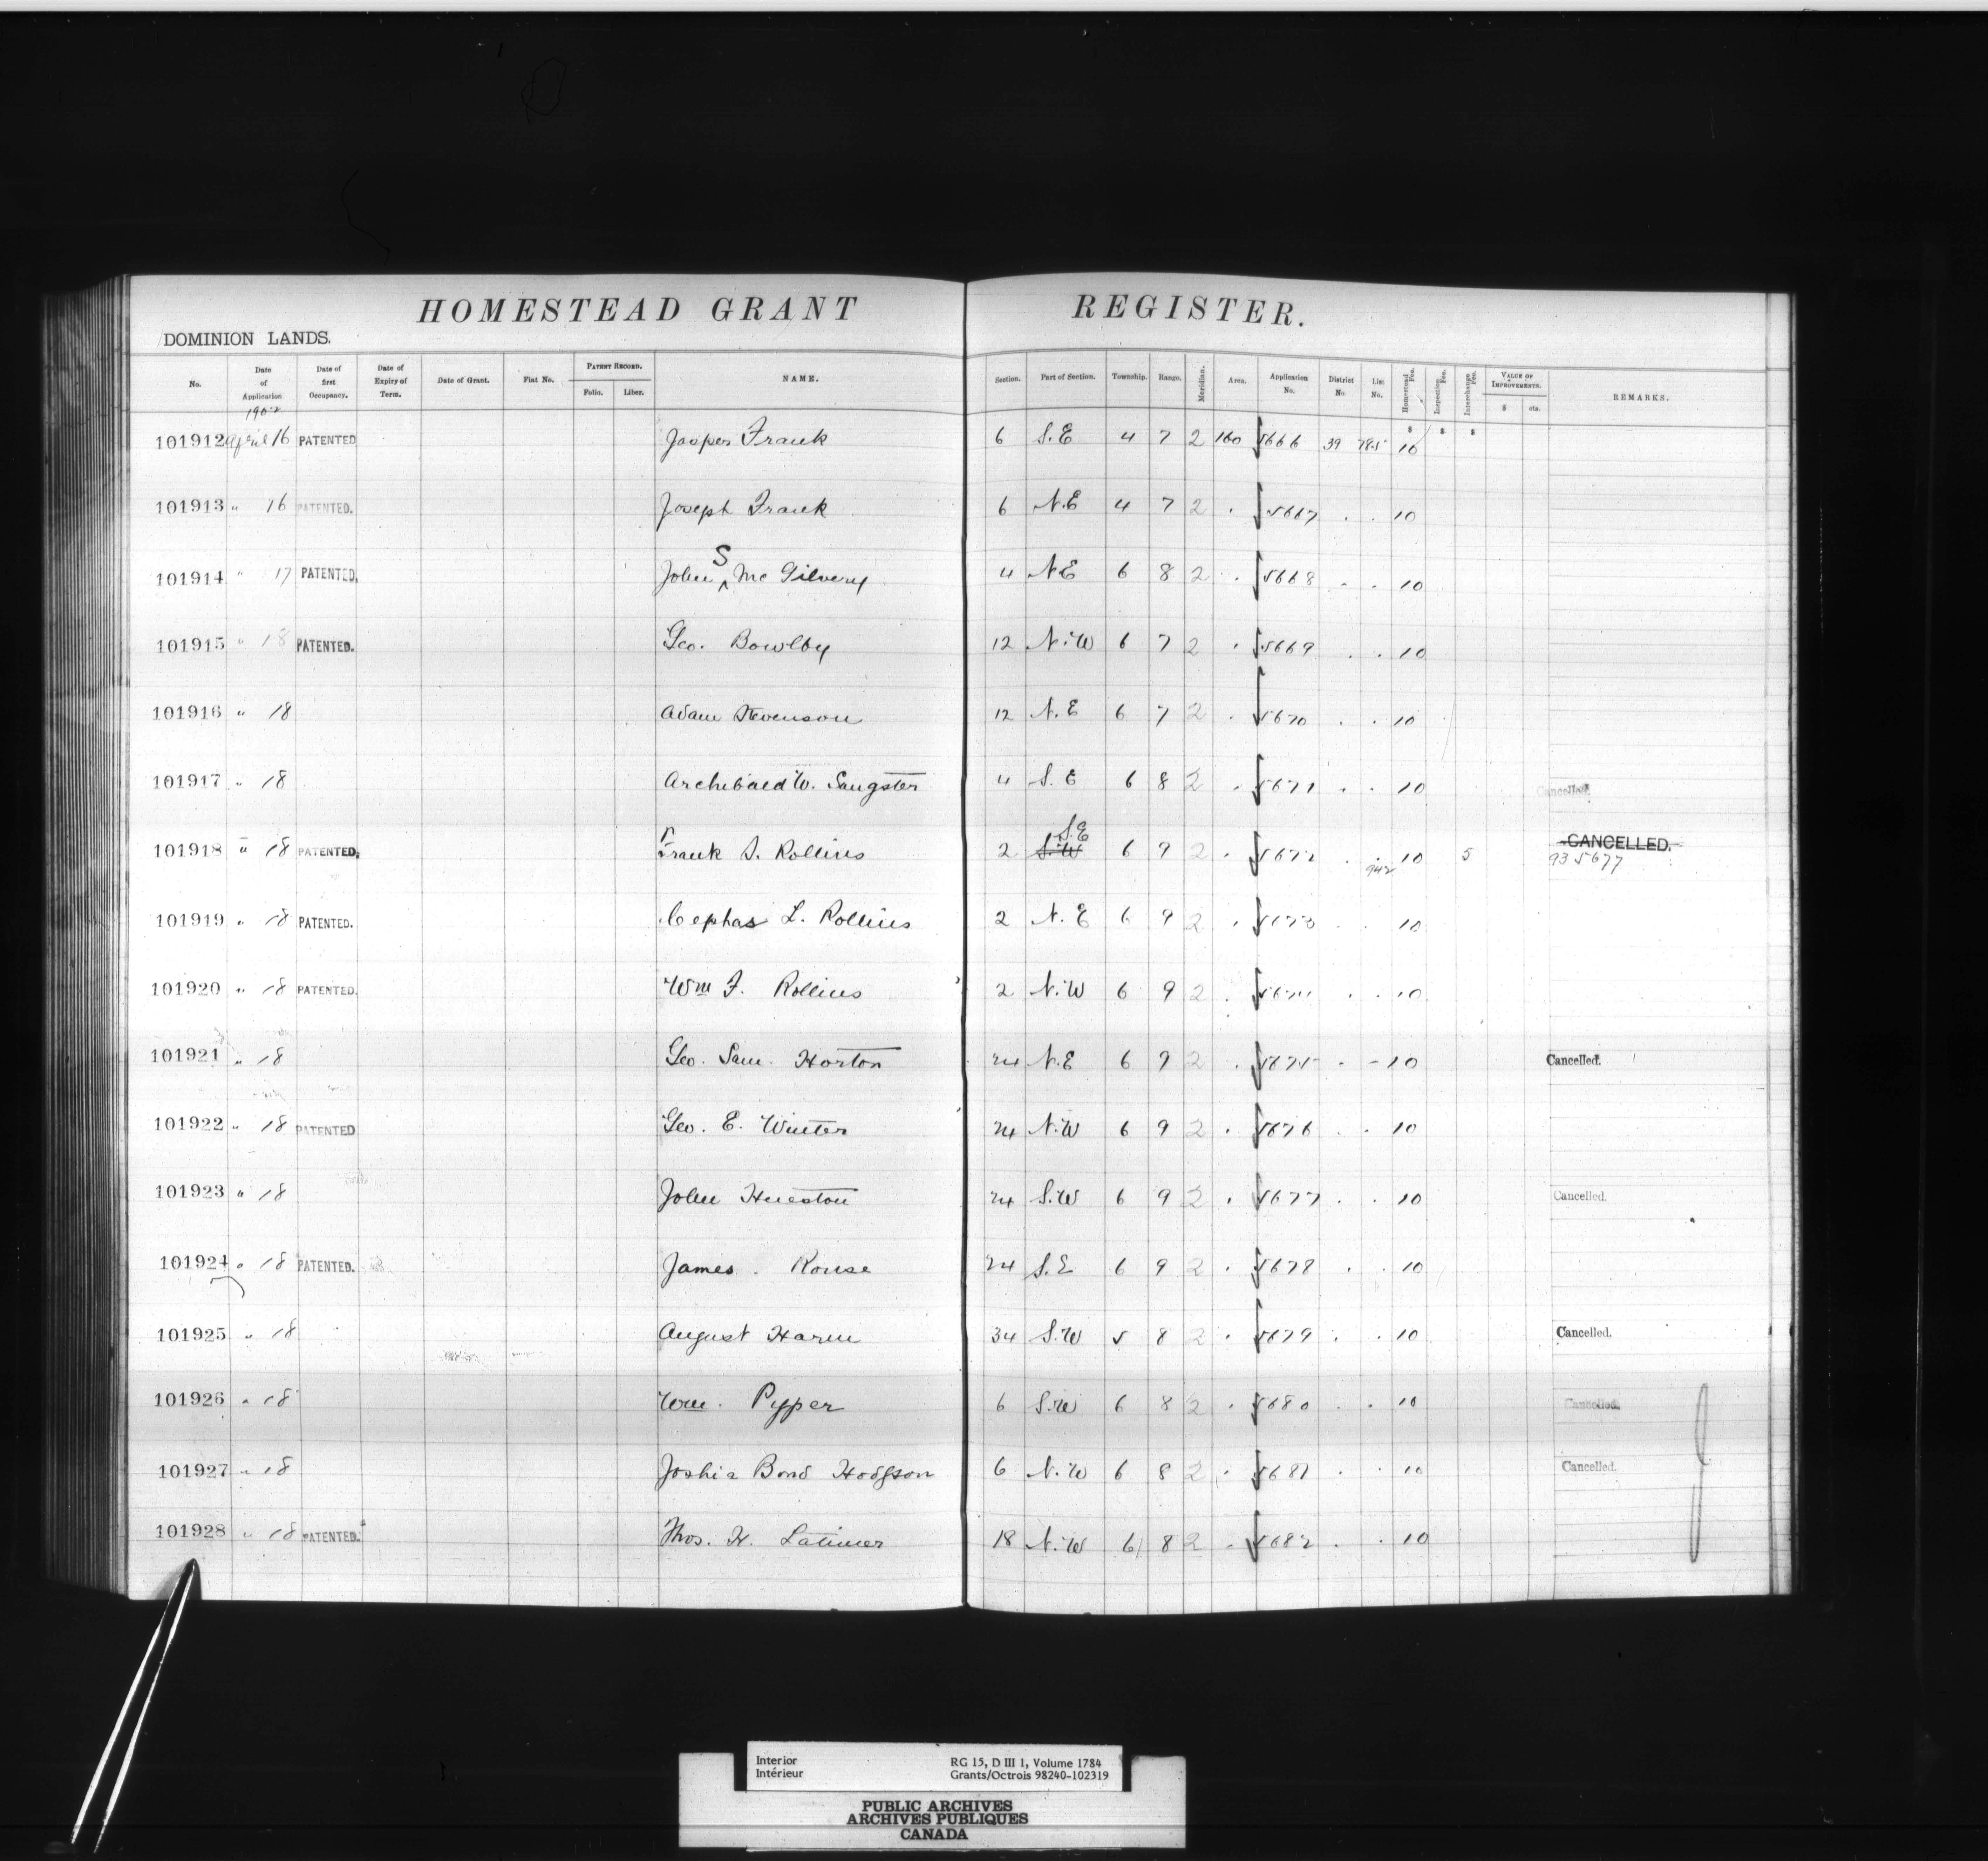 HOMESTEAD GRANT REGISTER.
DOMINION LANDS.
No. Date of Application Date of first Occupancy. Date of Expiry of Term. Date of Grant. Fiat No. PATENT RECORD. Folio. Liber. NAME. Section. Part of Section. Township. Range. Meridian. Area. Application No. District No. List No. Homestead Fee. Inspection Fee. Interchange Fee. VALUE OF IMPROVEMENTS. $ cts. REMARKS.
1902
$ $ $
101912 April 16 PATENTED Jasper Frank 6 S.E 4 7 2 160 5666 39 785 10
101913 " 16 PATENTED. Joseph Frank 6 N.E 4 7 2 . 5667 . . 10
S
101914 " 17 PATENTED. John ^ McGilvery 4 N.E 6 8 2 . 5668 . . 10
101915 " 18 PATENTED. Geo. Bowlby 12 N.W 6 7 2 . 5669 . . 10
101916 " 18 Adam Stevenson 12 N.E 6 7 2 . 5670 . . 10
101917 " 18 Archibald W. Sangster 4 S.E 6 8 2 . 5671 . . 10 Cancelled.
S.E
101918 " 18 PATENTED. Frank S. Rollins 2 S.W 6 9 2 . 5672 . . 10 5 CANCELLED.
942 935677
101919 " 18 PATENTED. Cephas L. Rollins 2 N.E 6 9 2 . 5673 . . 10
101920 " 18 PATENTED. Wm F. Rollins 2 N.W 6 9 2 . 5674 . . 10
101921 " 18 Geo. Sam. Horton 24 N.E 6 9 2 . 5675 . - 10 Cancelled.
101922 " 18 PATENTED Geo. E. Winter 24 N.W 6 9 2 . 5676 . . 10
101923 " 18 John Hueston 24 S.W 6 9 2 . 5677 . . 10 Cancelled.
101924 " 18 PATENTED. James. Rouse 24 S.E 6 9 2 . 5678 . . 10
101925 " 18 August Harm 34 S.W 5 8 2 . 5679 . . 10 Cancelled.
101926 " 18 Wm. Pyper 6 S.W 6 8 2 . 5680 . . 10 Cancelled.
101927 " 18 Joshia Bond Hodgson 6 N.W 6 8 2 . 5681 . . 10 Cancelled.
101928 " 18 PATENTED. Thos. H. Latimer 18 N.W 6 8 2 . 5682 . . 10
Interior RG 15, D III 1, Volume 1784
Intérieur Grants/Octrois 98240-102319
PUBLIC ARCHIVES
ARCHIVES PUBLIQUES
CANADA